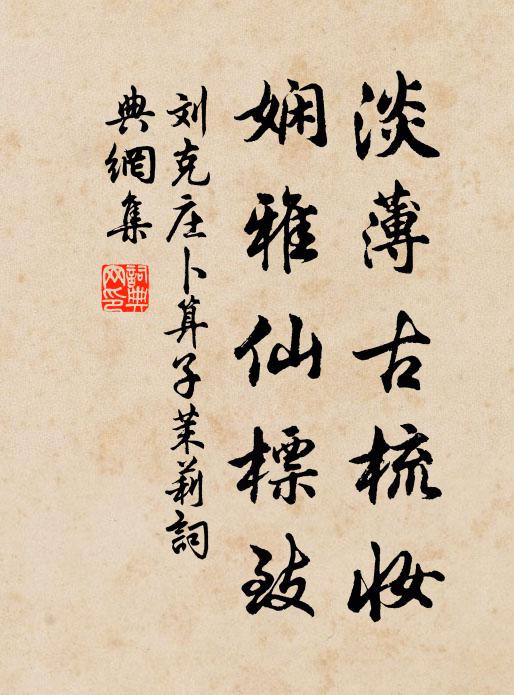 淡薄古梳妆
娴雅仙標致
刘克庄卜算子茉莉詞
典網集
詞典网印